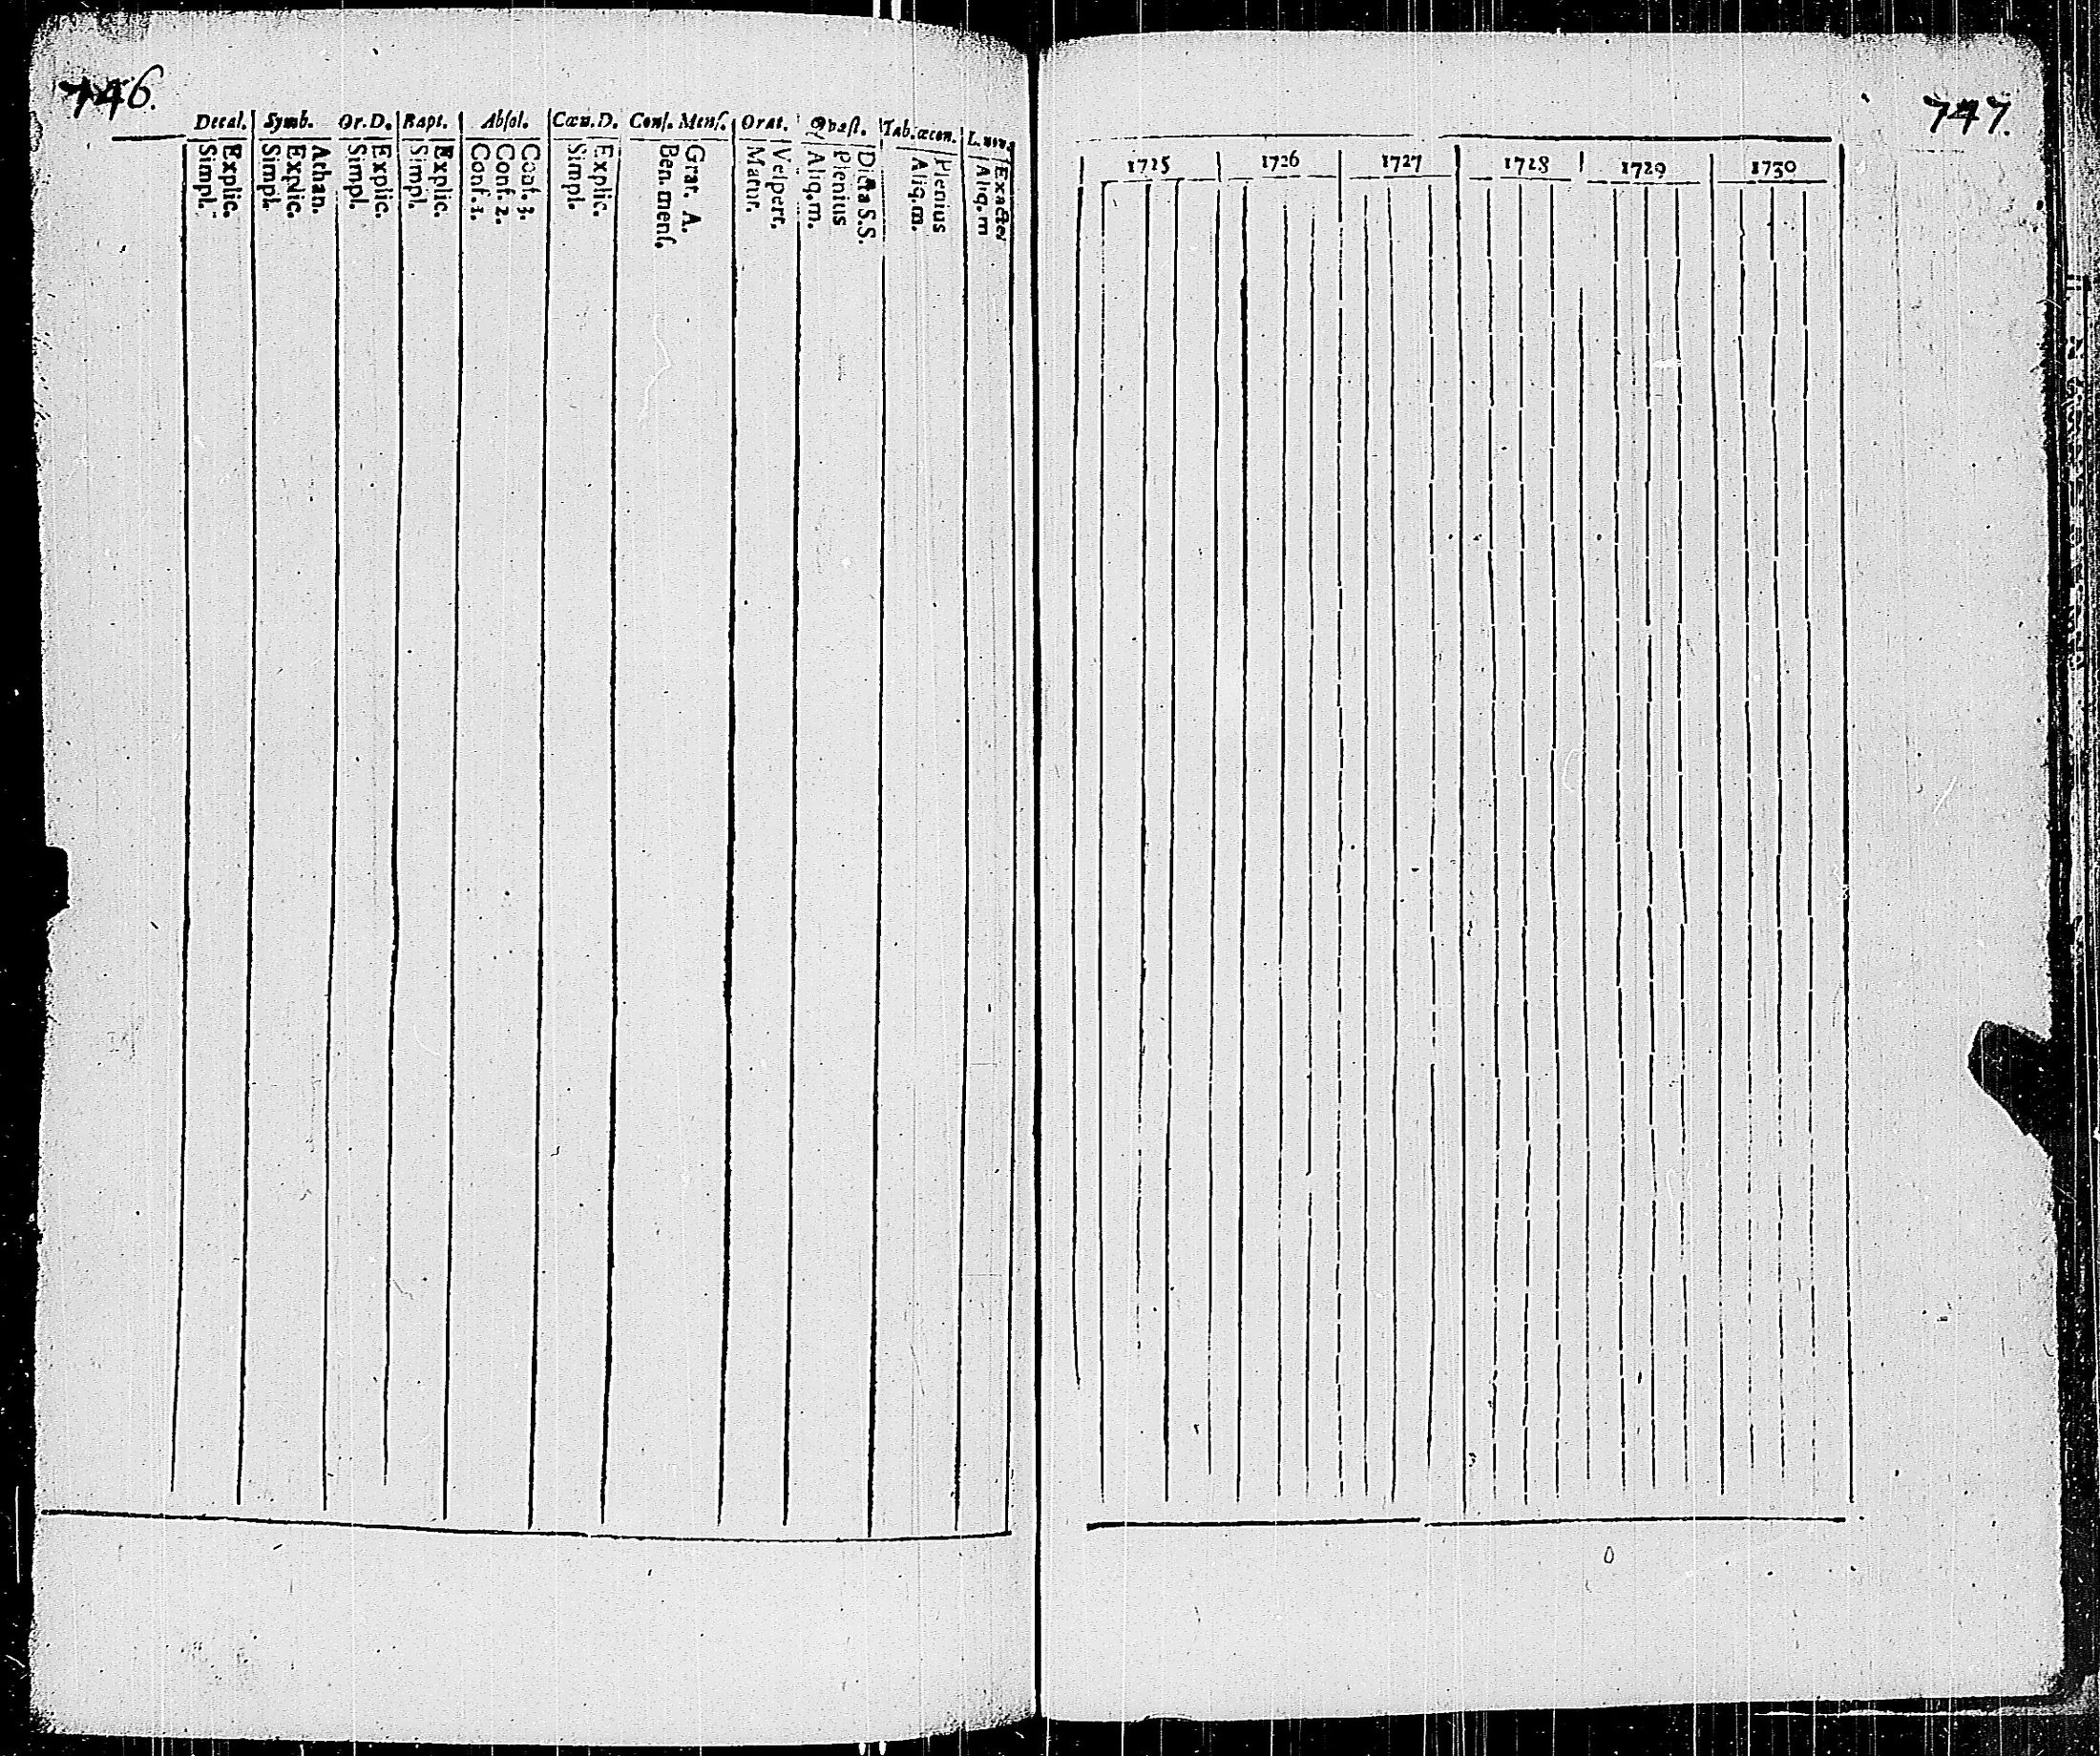 746.
Decal. Symb. Or.D. Bapt. Abſol. Cœn.D. Conf. Menſ. Orat. Qvæſt. Tab.œcon. L.nov.
Simpl. Explic. Simpl. Explic. Athan. Simpl. Explic. Simpl. Explic. Conf. 1. Conf. 2. Conf. 3. Simpl. Explic. Ben. menſ. Grat. A. Matut. Veſpert. Aliq.m. Plenius Dicta S.S. Aliq.m. Plenius Aliq.m Exactei
747.
1725 1726 1727 1728 1729 1730